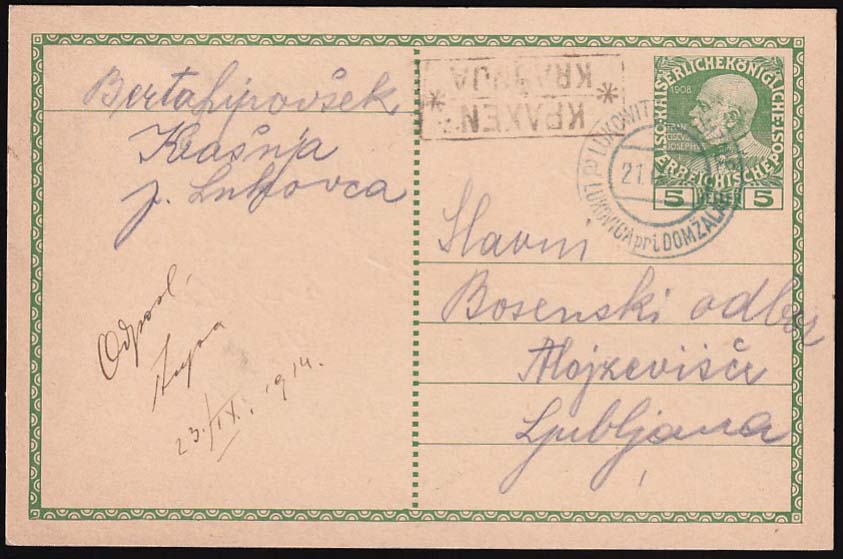 Berta Lipovšek
Krašnja
p. Lukovca
Odposl.
23./IX. 1914.
* KRAXEN *
KRAŠNJA
LUKOVICA pri DOMŽALAH
21.
KAISERLICHE KÖNIGLICHE ÖSTERREICHISCHE POST
1908
FRANZ
JOSEPH I
5 HELLER 5
Slavni
Bosenski odbor
Alojzevišče
Ljubljana